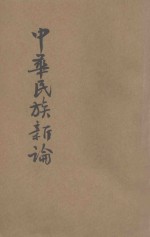 中華民族新論